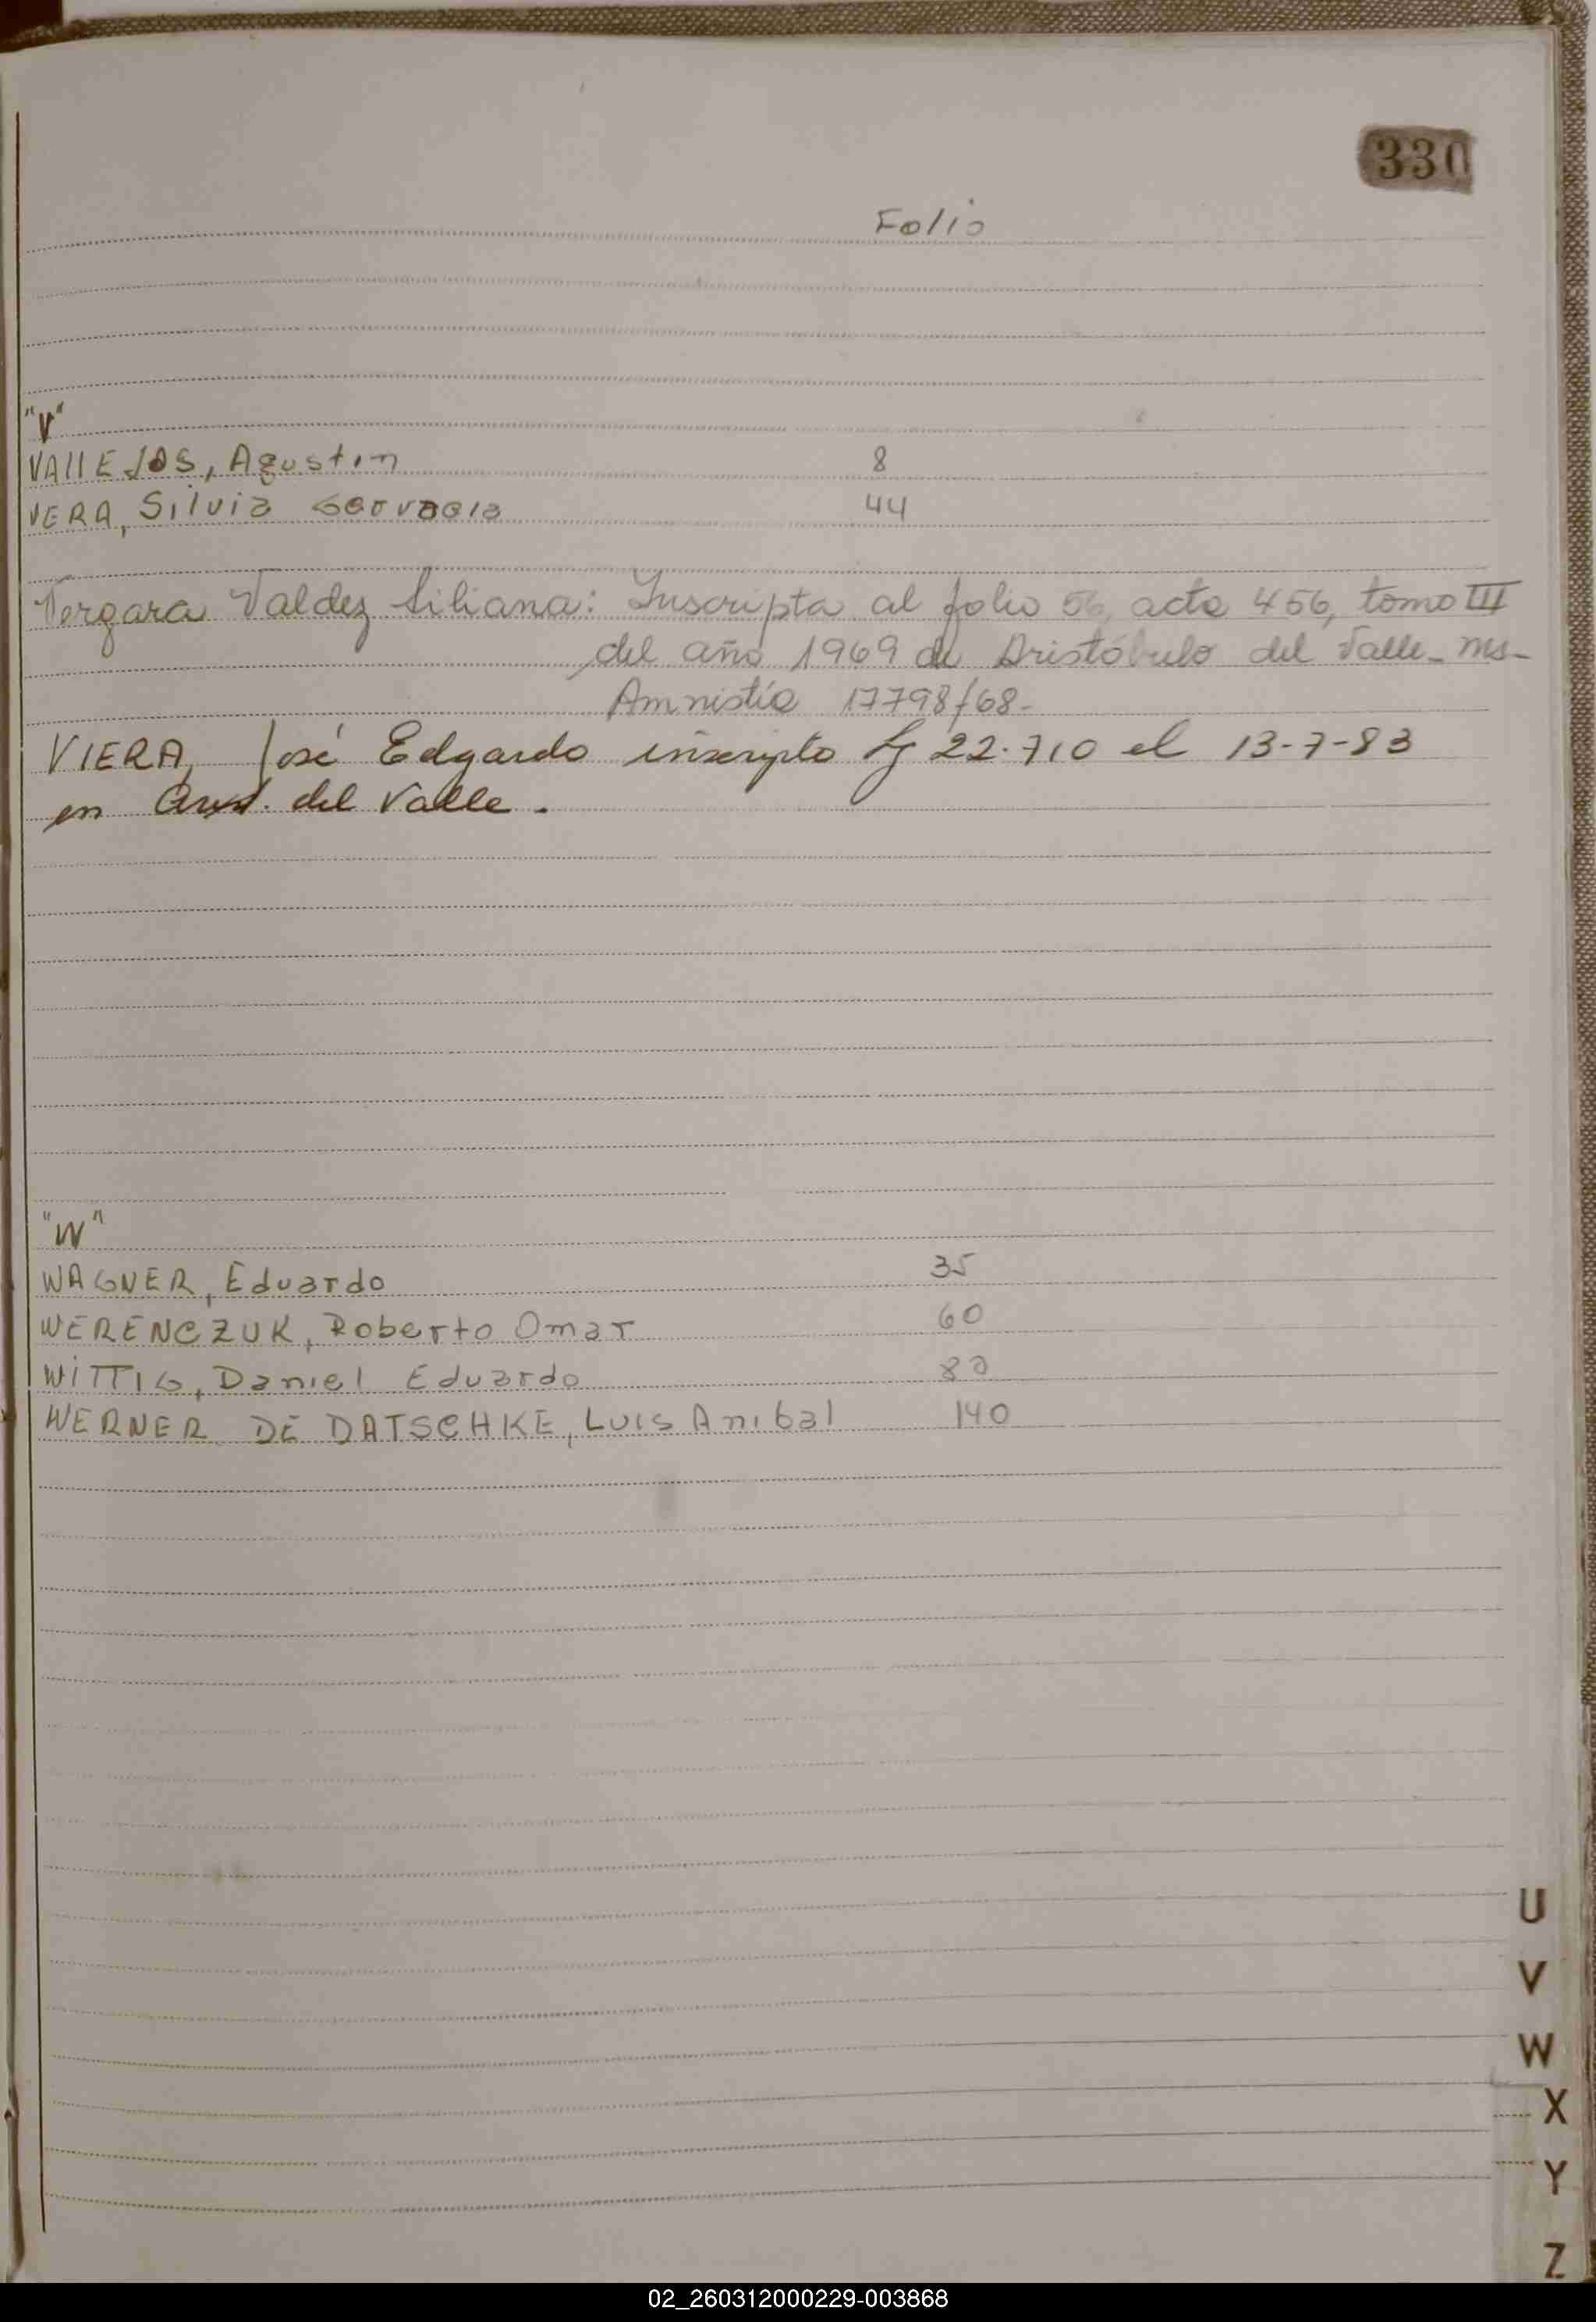 330
Folio
"V"
VALLEJOS, Agustin 8
VERA, Silvia Gervacia 44
Vergara Valdez Liliana: Inscripta al folio 56, acta 456, tomo III
del año 1969 de Aristóbulo del Valle - Ms-
Amnistía 17798/68-
VIERA, José Edgardo inscripto Ly 22.710 el 13-7-83
en Arist. del Valle.
"W"
WAGNER, Eduardo 35
WERENCZUK, Roberto Omar 60
WITTIG, Daniel Eduardo 80
WERNER DE DATSCHKE, Luis Anibal 140
U
V
W
X
Y
Z
02_260312000229-003868